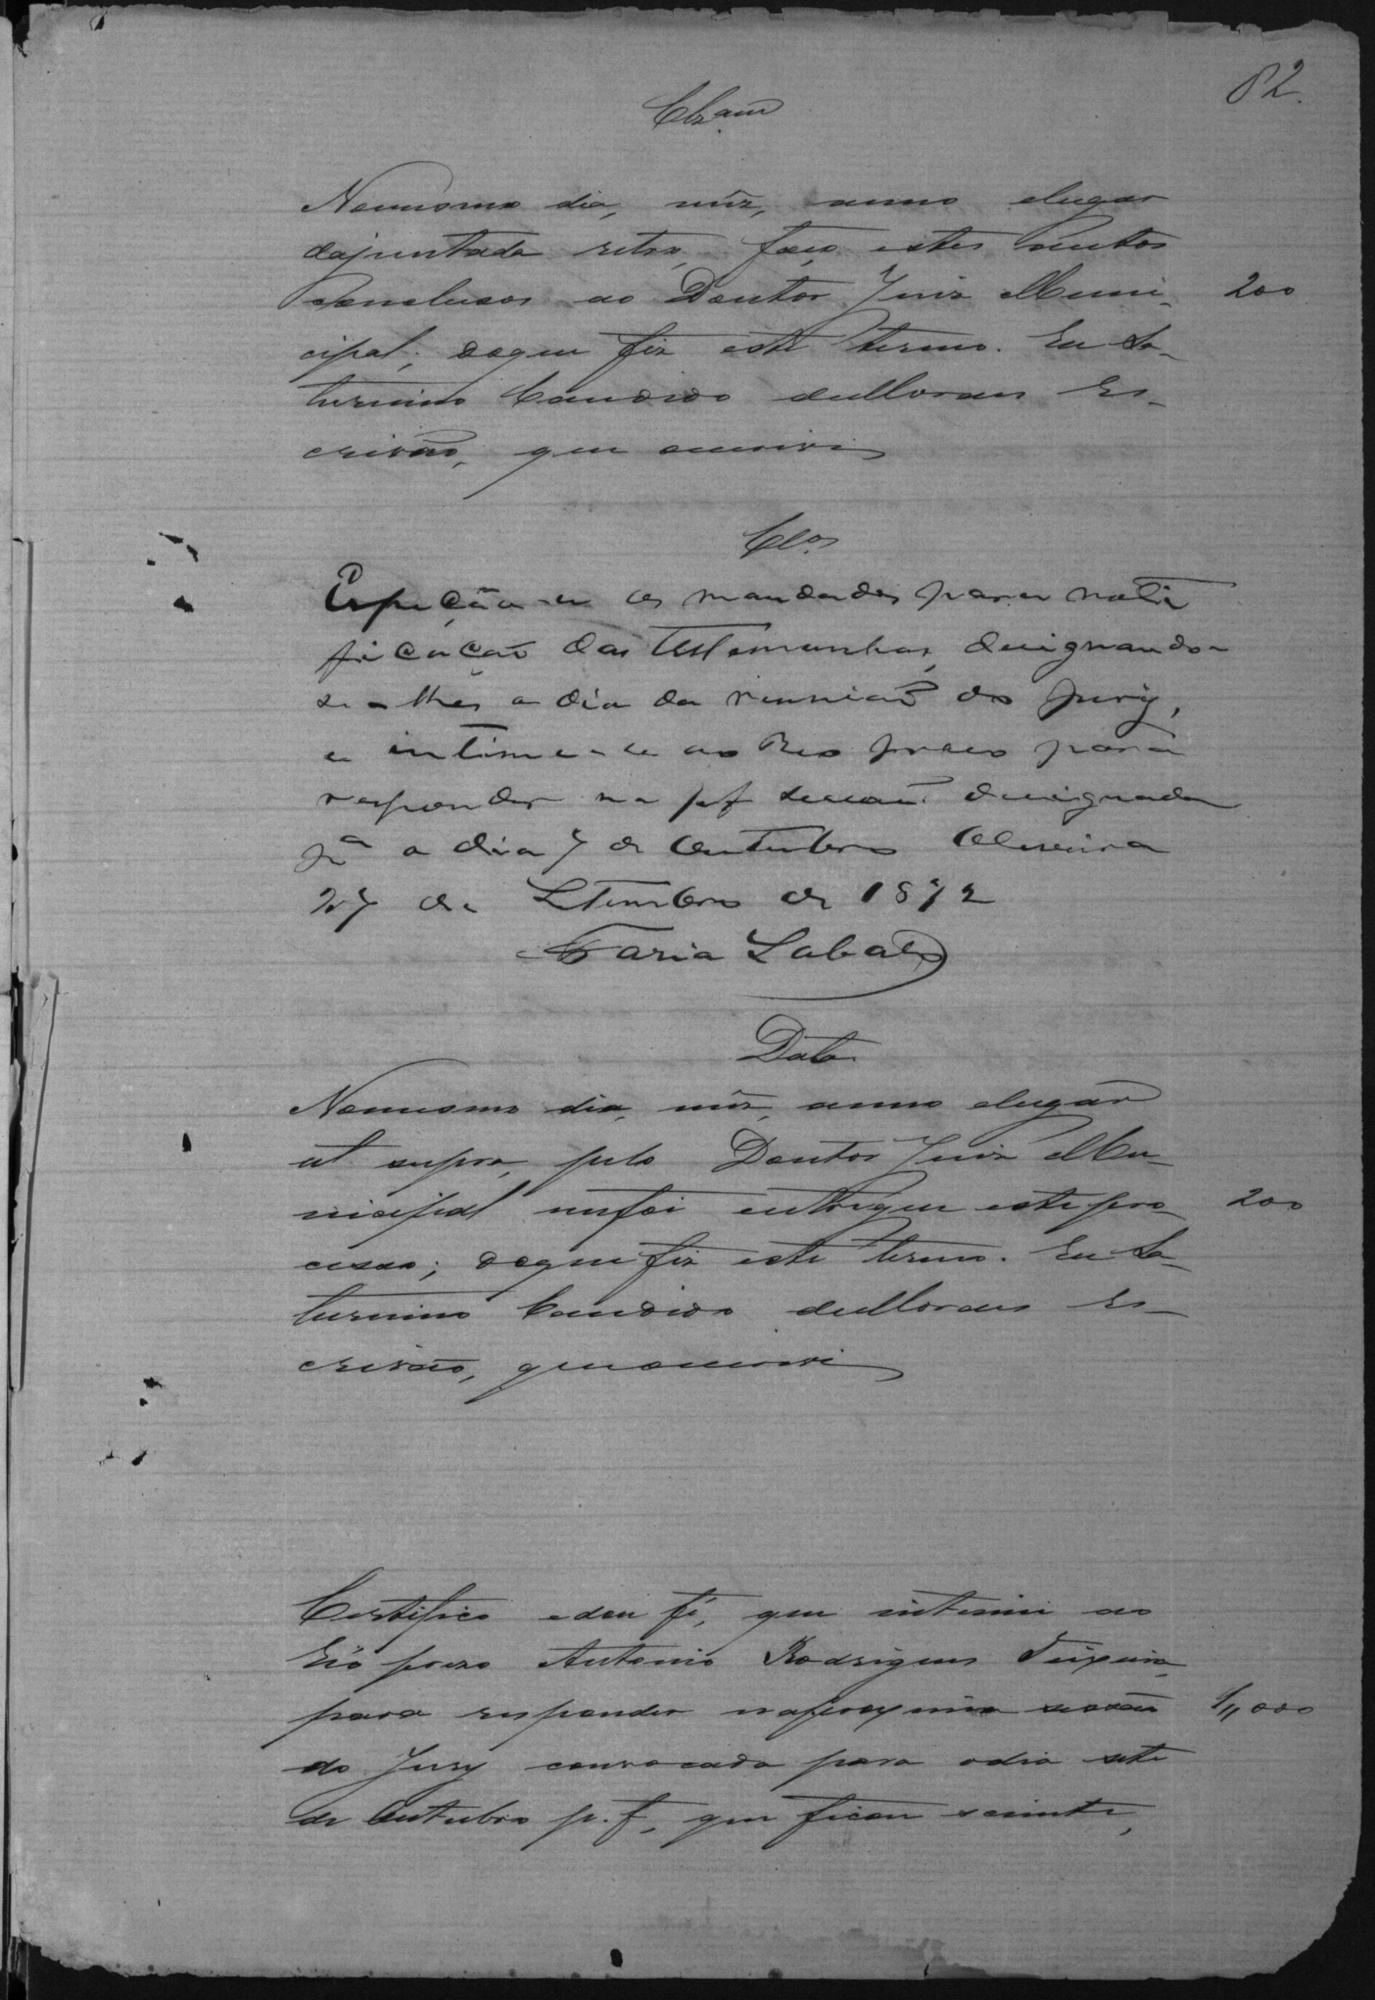 82.
Clzam
Nomesmo dia, mêz, anno elugar
dajuntada retro, faço estes autos
conclusos ao Doutor Juiz Muni-
cipal; doque fiz este termo. Eu Sa-
turnino Candido deMoraes Es-
crivão, que escrevi
200
Clos
Espeção-se os mandados para noti
ficação das testemunhas, designando-
se-lhes o dia da reunião do jury,
e intime-se ao Reo preso para
responder na p f sessão designada
pa o dia 7 de Outubro Oliveira
27 de Setembro de 1872
Faria Lobato
Data
Nomesmo dia, mêz, anno elugar
ut supra, pelo Doutor Juiz Mu-
nicipal mefoi entregue este pro-
cesso; doque fiz este termo. Eu Sa-
turnino Candido deMoraes Es-
crivão, queescrevi
200
Certifico edou fé, que intimei ao
Réo prezo Antonio Rodrigues Teixeira,
para responder naproxima sessão
do Jury convocada para odia sete
de Outubro p.f, que ficou sciente,
1,,000